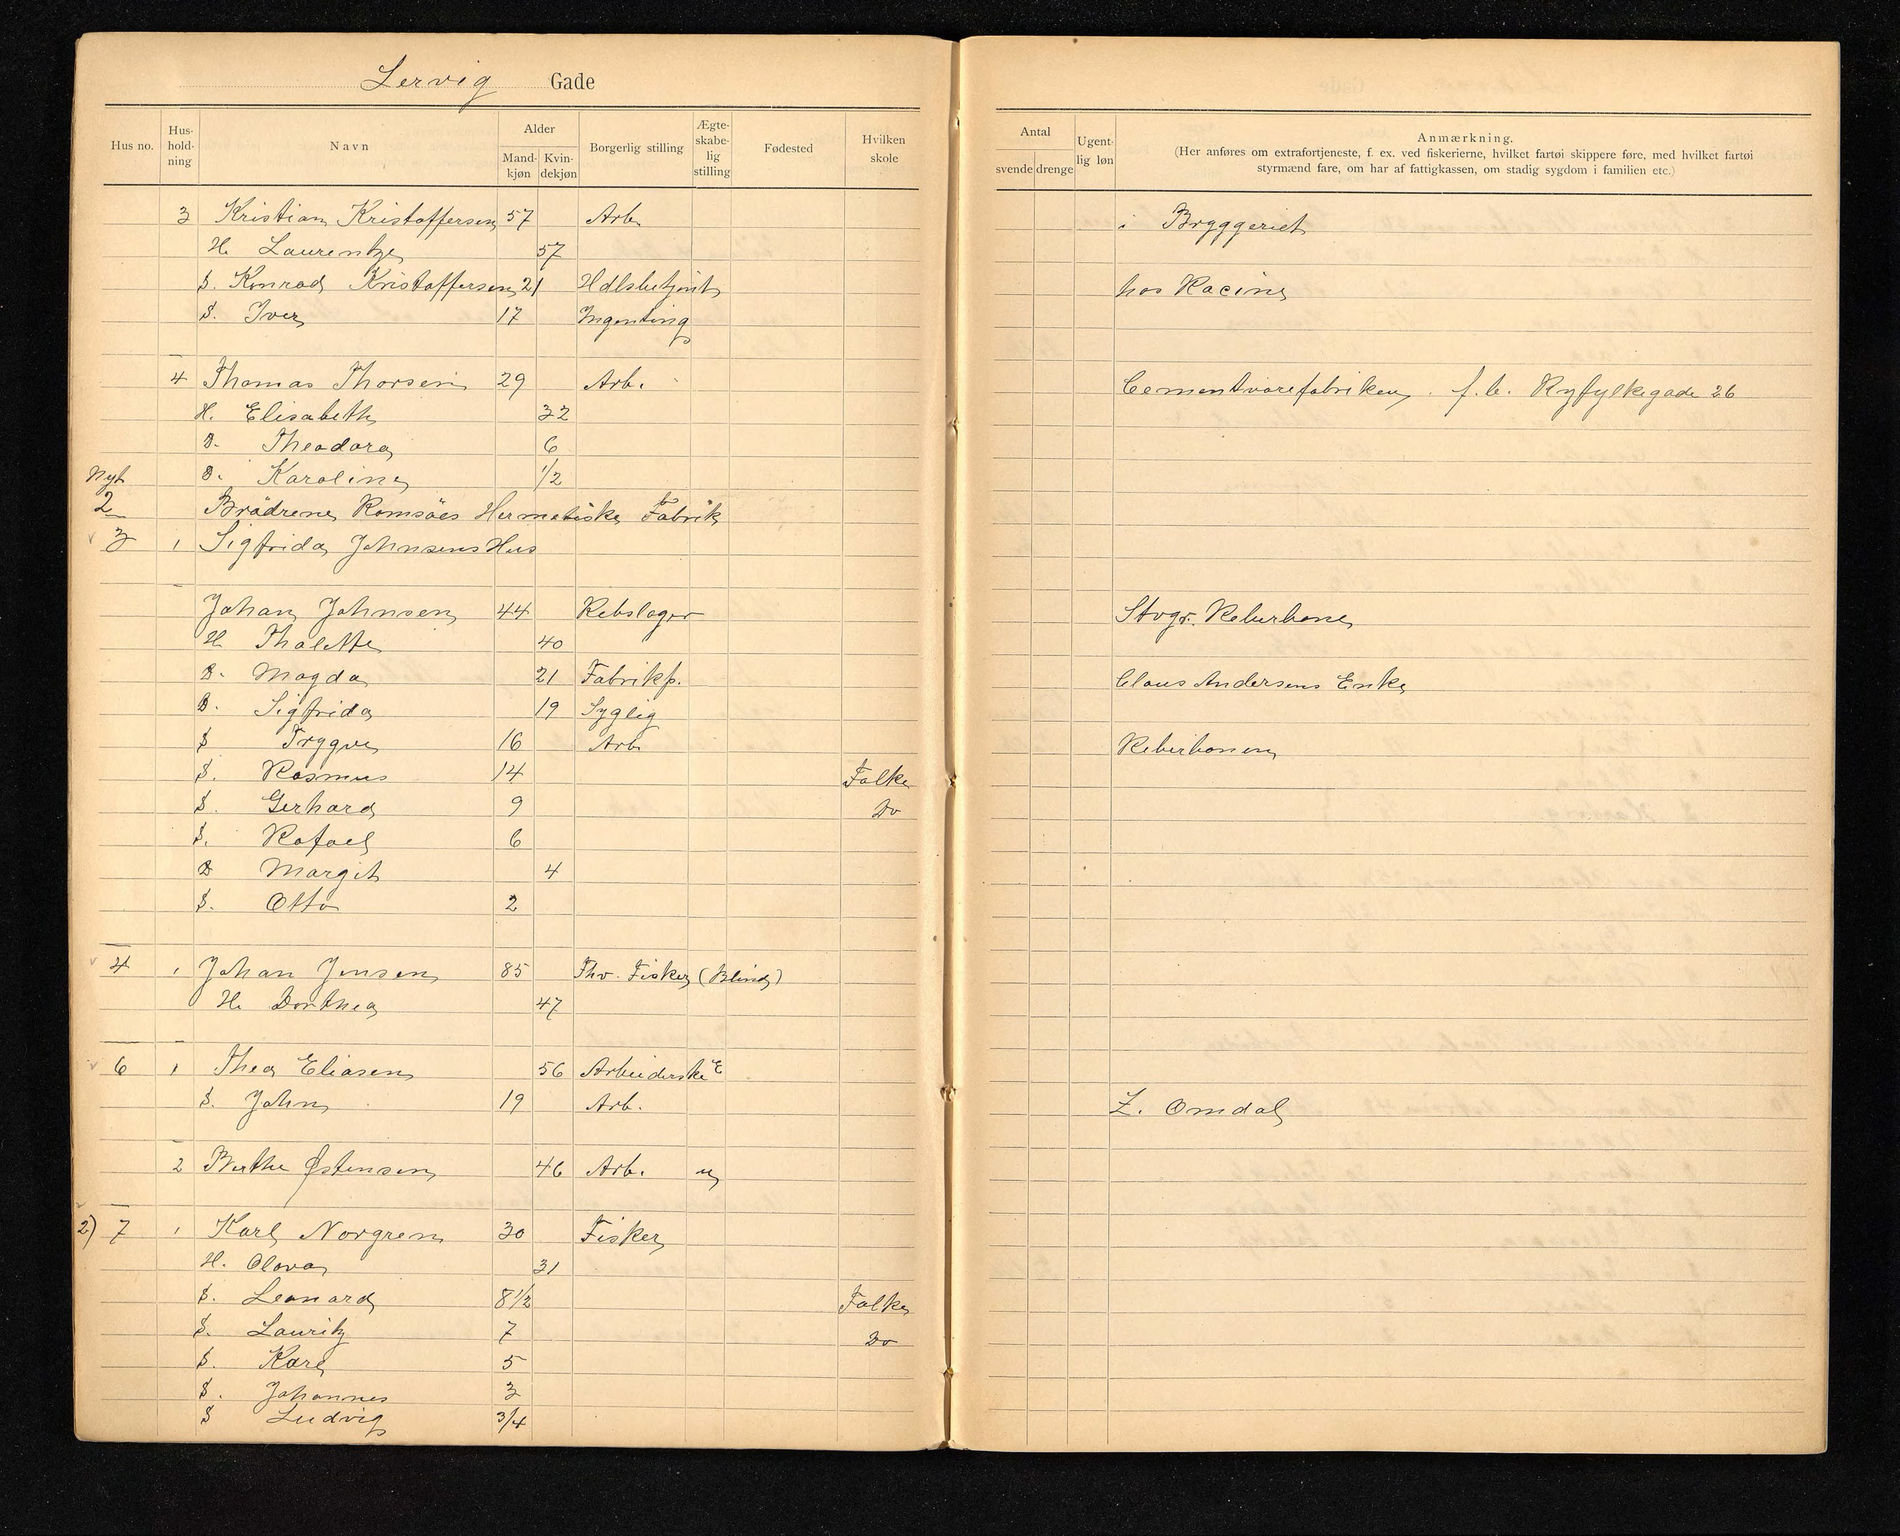 Lervig Gade
Hus no. Hus-hold-ning Navn Alder Mand-kjøn Kvin-dekjøn Borgerlig stilling Ægte-skabe-lig stilling Fødested Hvilken skole
Antal svende drenge Ugent-lig løn Anmærkning.
(Her anføres om extrafortjeneste, f. ex. ved fiskerierne, hvilket fartøi skippere føre, med hvilket fartøi
styrmænd fare, om har af fattigkassen, om stadig sygdom i familien etc.)
3 Kristian Kristoffersen 57 Arb. i Bryggeriet
H. Laurentze 57
S. Konrad Kristoffersen 21 Hdlsbetjent hos Racine
S. Iver 17 Ingenting
4 Thomas Thorsen 29 Arb. Cementvarefabriken. f.b. Ryfylkegade 26
H. Elisabeth 32
D. Theodora 6
D. Karoline 1/2
Nyt
2 Brödrene Romsöes Hermetiske Fabrik
3 1 Sigfrida Johnsens Hus
Johan Johnsen 44 Rebslager Stvgr. Reberbane
H. Thalette 40
D. Magda 21 Fabrikp. Claus Andersens Enke
D. Sigfrida 19 Syglig
S Trygve 16 Arb. Reberbanen
S. Rasmus 14 Folke
S. Gerhard 9 Do
S. Rafael 6
D Margit 4
S. Otto 2
4 1 Johan Jensen 85 Fhv. Fisker (Blind)
H. Dorthea 47
6 1 Thea Eliasen 56 Arbeiderske E
S. John 19 Arb. Z. Omdal
2 Berthe Østensen 46 Arb. u
2) 7 1 Karl Norgren 30 Fisker
H. Olava 31
S. Leonard 8 1/2 Folke
S. Lauritz 7 Do
S. Kare 5
S. Johannes 3
S Ludvig 3/4